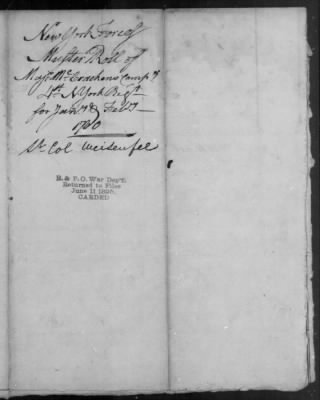 New York Forces
Muster Roll of
Majr. Mc. Crackens Comp'y
4th N York Regt
for Jany & Feby
1780
Lt Col Weisenfel
R. & P. O. War Dep't.
Returned to Files
June 11 1895.
CARDED